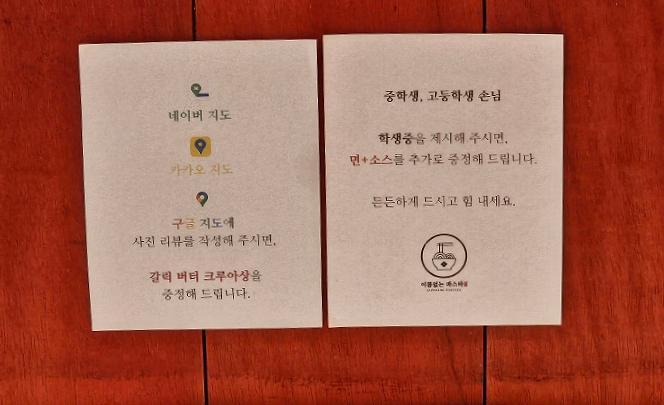 네이버 지도
카카오 지도
구글 지도에
사진 리뷰를 작성해 주시면,
갈릭 버터 크루아상을
증정해 드립니다.
중학생, 고등학생 손님
학생증을 제시해 주시면,
면+소스를 추가로 증정해 드립니다.
든든하게 드시고 힘 내세요.
이름없는 파스타집